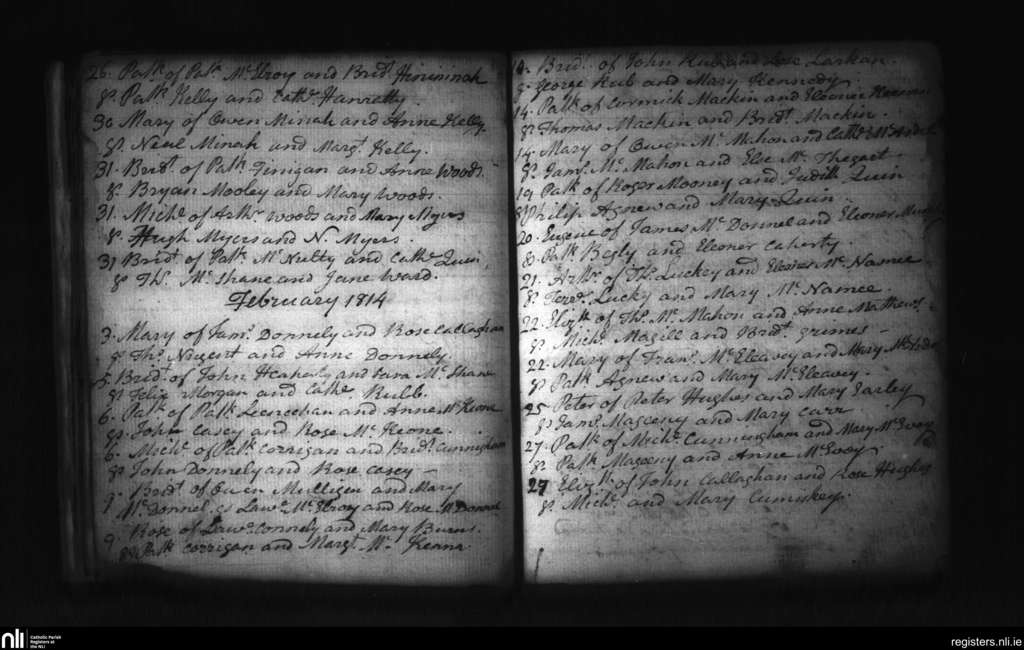 26. Patk of Patk McElroy and Bridt
Sps Patk Kelly and Cathe Hanretty.
30 Mary of Owen Minah and Anne Kelly
Sps Neal Minah and Margt Kelly.
31. Bridt of Patk Finigan and Anne Woods.
Sps Bryan Mooley and Mary Woods.
31. Michl of Arthr Woods and Mary Myers
Sps Hugh Myers and N. Myers.
31 Bridt of Patk McNulty and Cathe Quin
Sps Ths McShane and Jane Ward.
February 1814
3. Mary of Jams Donnely and Rose Callaghan
Sps Ths Nugent and Anne Donnely.
5. Bridt of John and McShane
Sps Felix Morgan and Cathe
6. Patk of Patk and Anne McKeone
Sps John Casey and Rose McKeone.
6. Michl of Patk Corrigan and Bridt Cunningham
Sps John Donnely and Rose Casey
9. Bridt of Owen Mulligen and Mary
McDonnel. Sps Lawe McElroy and Rose McDonnel
9. Rose of Lawe Connely and Mary Burns.
Sps Patk Corrigan and Margt
14. Bridt of John and Larkan.
Sps George and Mary Kennedy.
14. Patk of Cormick Mackin and Eleoner
Sps Thomas Mackin and Bridt Mackin.
14. Mary of Owen McMahon and Cathe McArdle
Sps Jams McMahon and
19 Patk of Roger Mooney and Judith Quin
Sps Philip Agnew and Mary Quin
20. Eugene of James McDonnel and Eleoner
Sps Patk Begly and Eleoner Caherty.
21. Arthr of Ths Luckey and Eleoner McNamee
Sps Lucky and Mary McNamee.
22. Elizth of Ths McMahon and Anne Mathews.
Sps Michl Magill and Bridt Grimes
22. Mary of Frans McEleavey and Mary
Sps Patk Agnew and Mary McEleavey.
25 Peter of Peter Hughes and Mary Farley
Sps Jams Mageeny and Mary Carr
27. Patk of Michl Cunningham and Mary McEvoy
Sps Patk Mageeny and Anne McEvoy
27 Elizth of John Callaghan and Rose Hughes
Sps Michl and Mary Cumiskey.
nli
Catholic Parish
Registers at
the NLI
registers.nli.ie